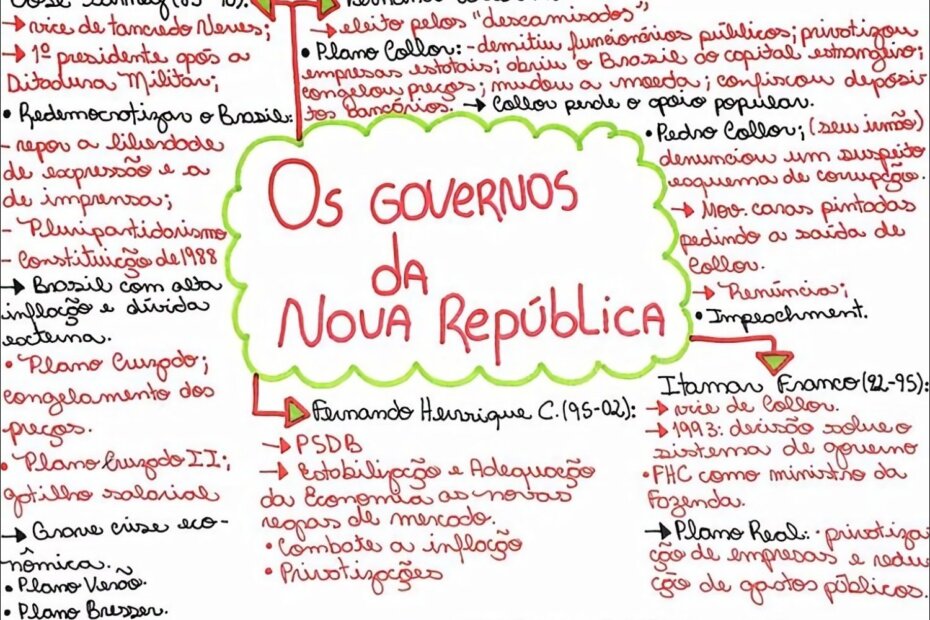 → vice de Tancredo Neves;
→ 1º presidente após a
Ditadura Militar;
• Redemocratizar o Brasil:
- repor a liberdade
de expressão e a
de imprensa;
- Pluripartidarismo
- Constituição de 1988
→ Brasil com alta
inflação e dívida
externa.
• Plano Cruzado;
congelamento dos
preços.
• Plano Cruzado II;
gatilho salarial
→ Grave crise eco-
nômica.
• Plano Verão.
• Plano Bresser.
→ eleito pelos "descamisados";
• Plano Collor: - demitiu funcionários públicos; privatizou
empresas estatais; abriu o Brasil ao capital estrangeiro;
congelou preços; mudou a moeda; confiscou depósi
tos bancários. → Collor perde o apoio popular.
• Pedro Collor; (seu irmão)
denunciou um suspeito
esquema de corrupção.
→ Mov. caras pintadas
pedindo a saída de
Collor.
→ Renúncia;
• Impeachment.
Os GOVERNOS
da
NOVA República
Itamar Franco (92-95):
→ vice de Collor.
→ 1993: decisão sobre o
sistema de governo
• FHC como ministro da
Fazenda.
→ Plano Real: • privatiza
ção de empresas e redu
ção de gastos públicos.
Fernando Henrique C. (95-02):
→ PSDB
→ Estabilização e Adequação
da Economia as novas
regras de mercado.
• Combate a inflação
• Privatizações